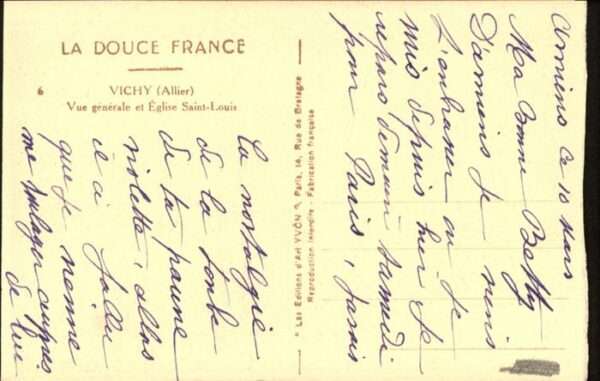 LA DOUCE FRANCE
6 VICHY (Allier)
Vue générale et Église Saint-Louis
"Les Éditions d'Art YVON", Paris, 14, Rue de Bretagne
Reproduction interdite - Fabrication française
Amiens ce 10 Mars
Ma bonne Betty
D'amiens je viens
t'embrasser où je
suis depuis hier je
repars demain samedi
pour Paris, j'avais
la nostalgie
de la tombe
de ta pauvre
violette, alors
il a fallu
que je vienne
me soulager auprès
de lui